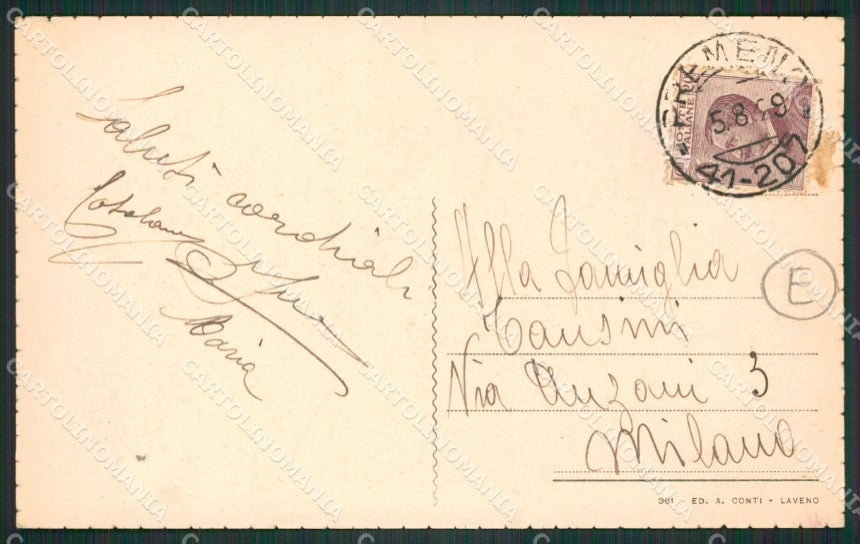 Saluti cordiali
Maria
PREMENO
5.8.29
41-207
POSTE ITALIANE
Alla Famiglia
Via Anzani 3
Milano
E
361 ED. A. CONTI - LAVENO
CARTOLINOMANIA